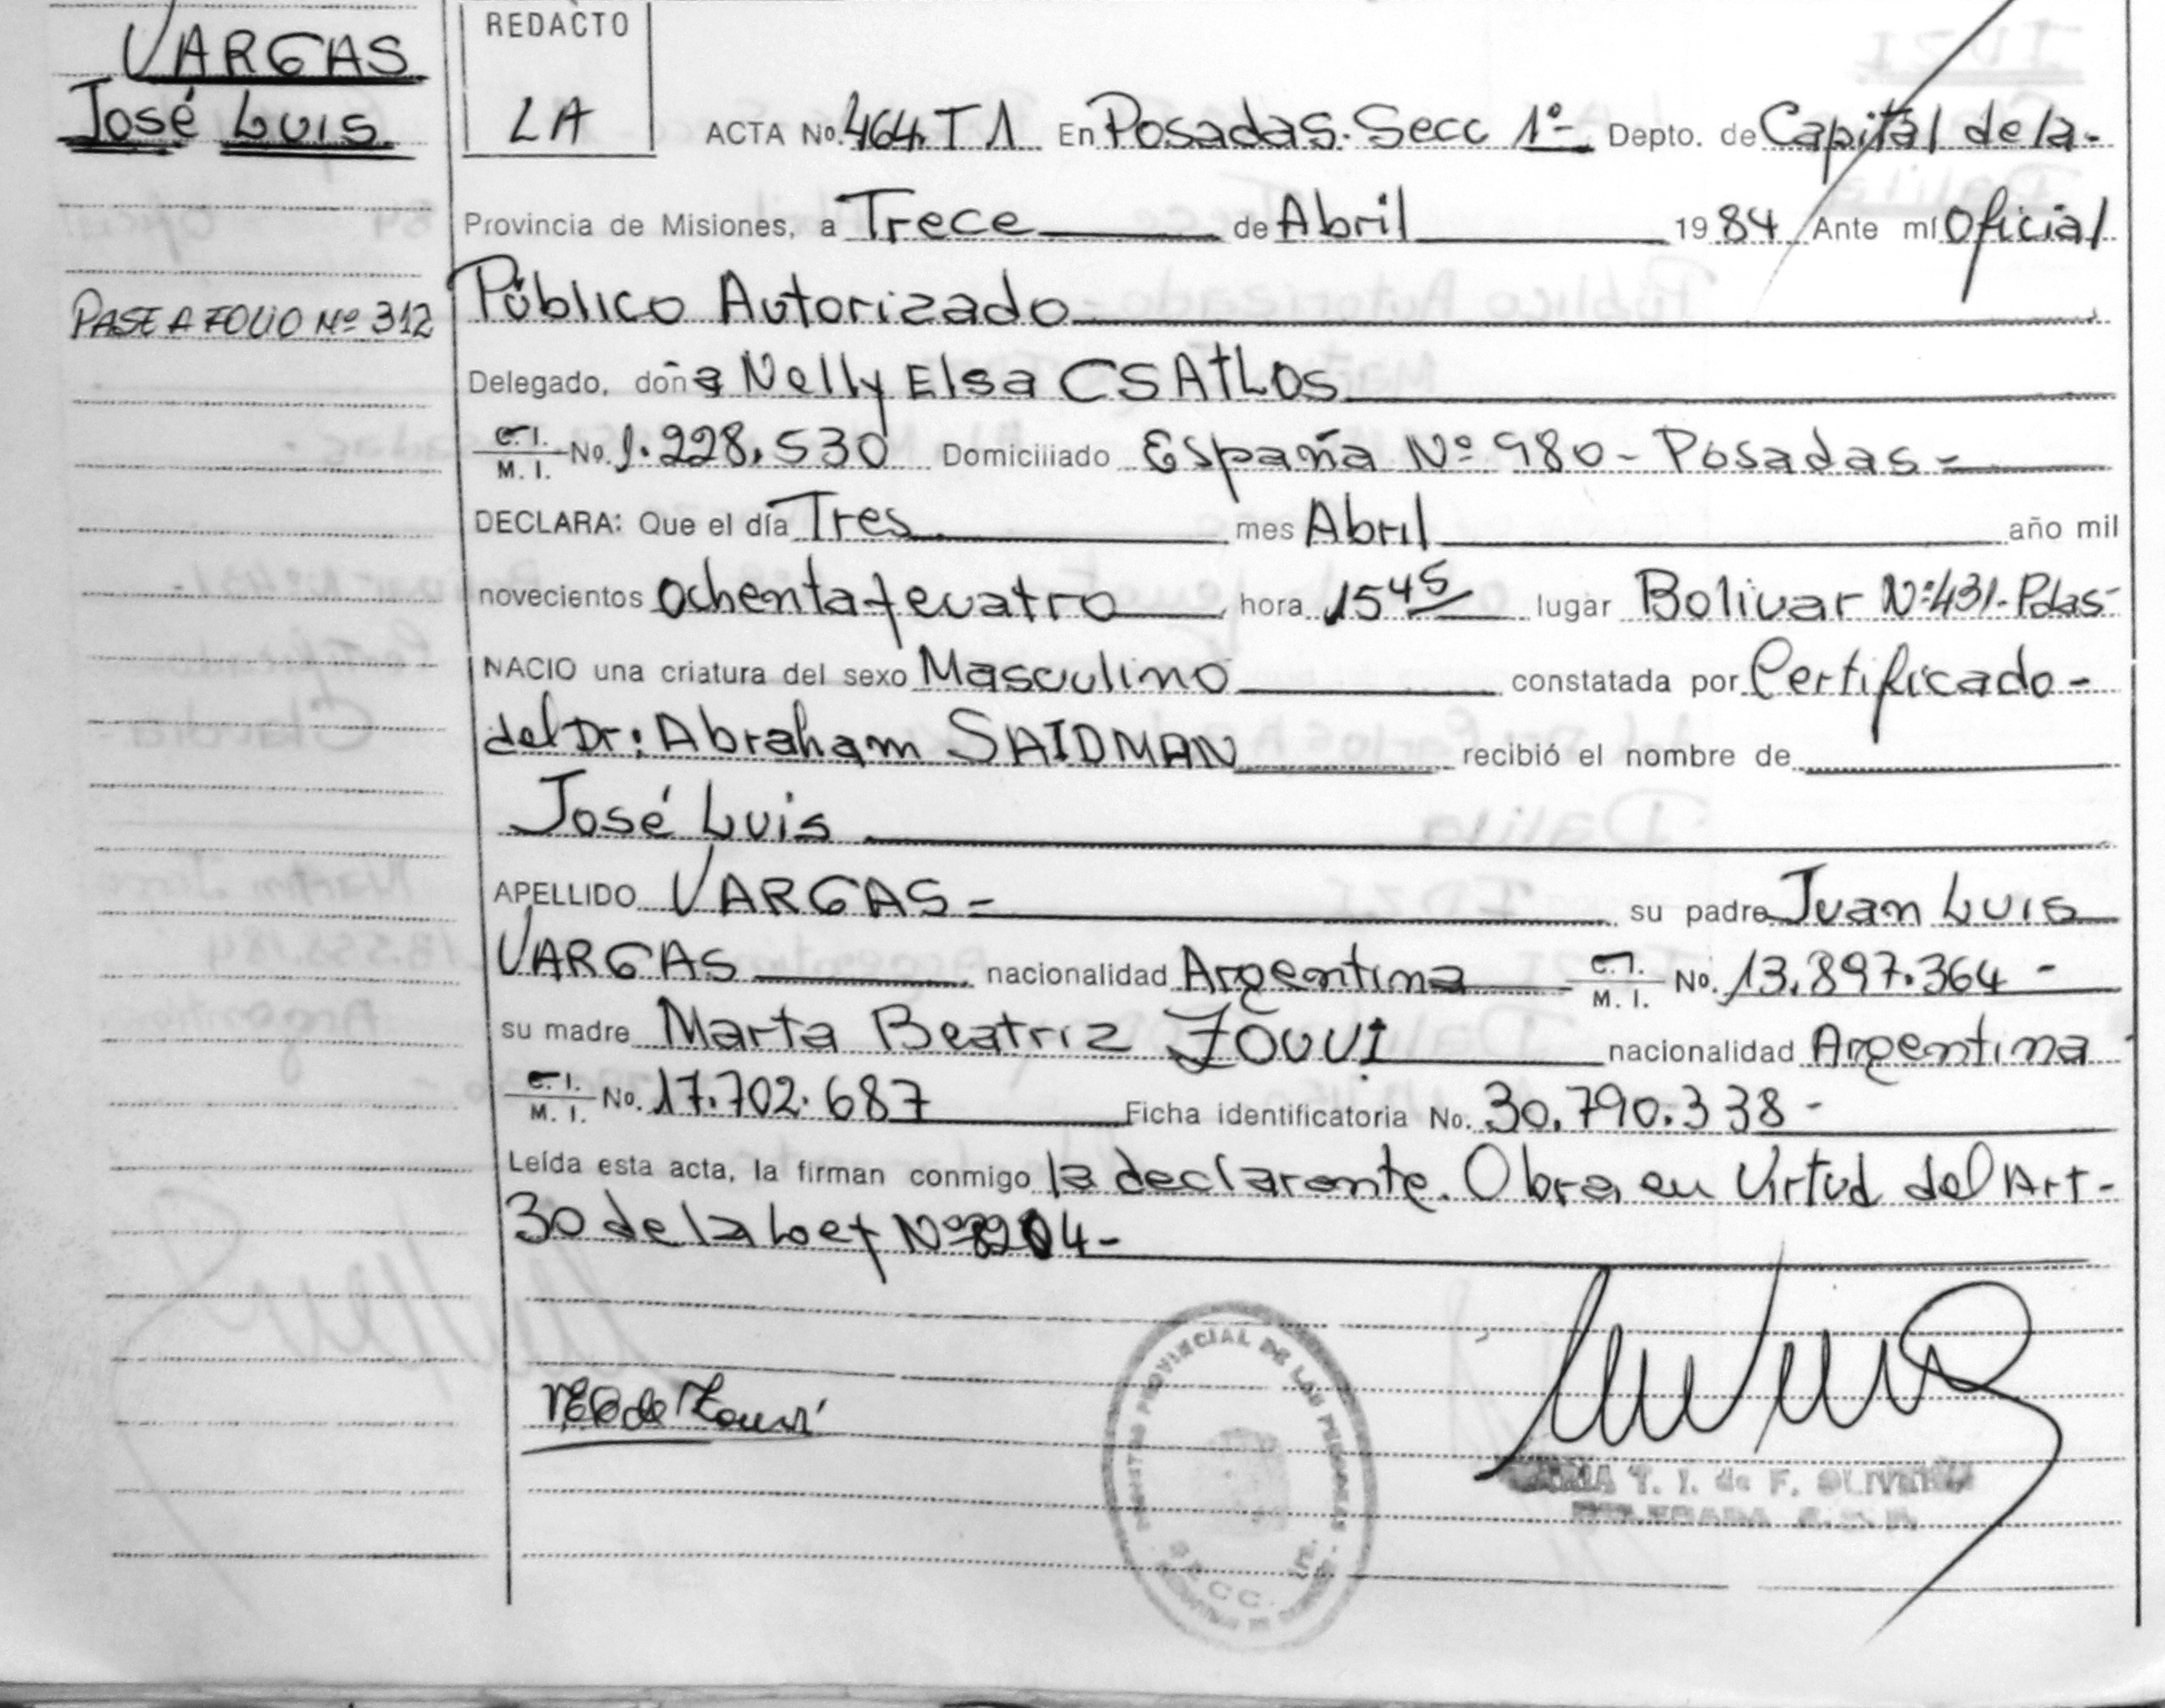 VARGAS
José Luis
PASE A FOLIO Nº 312
REDACTO
LA
ACTA No. 464. T 1 En Posadas. Secc 1º- Depto. de Capital de la-
Provincia de Misiones, a Trece de Abril 1984 Ante mí Oficial
Público Autorizado
Delegado, doña Nelly Elsa CSATLOS
C. I. / M. I. No. 1.228.530 Domiciliado España Nº 980- Posadas-
DECLARA: Que el día Tres mes Abril año mil
novecientos ochenta y cuatro hora 15 45 lugar Bolivar Nº:431-Pdas-
NACIO una criatura del sexo Masculino constatada por Certificado-
del Dr: Abraham SAIDMAN recibió el nombre de
José Luis
APELLIDO VARGAS- su padre Juan Luis
VARGAS nacionalidad Argentina C. I. / M. I. No. 13.897.364-
su madre Marta Beatriz ZOUVI nacionalidad Argentina
C. I. / M. I. No. 17.702.687 Ficha identificatoria No. 30.790.338-
Leída esta acta, la firman conmigo la declarante. Obra en Virtud del Art-
30 de la Ley Nº 8204-
PROVINCIAL DE LAS PERSONAS
T. I. de F. OLIVEIRA